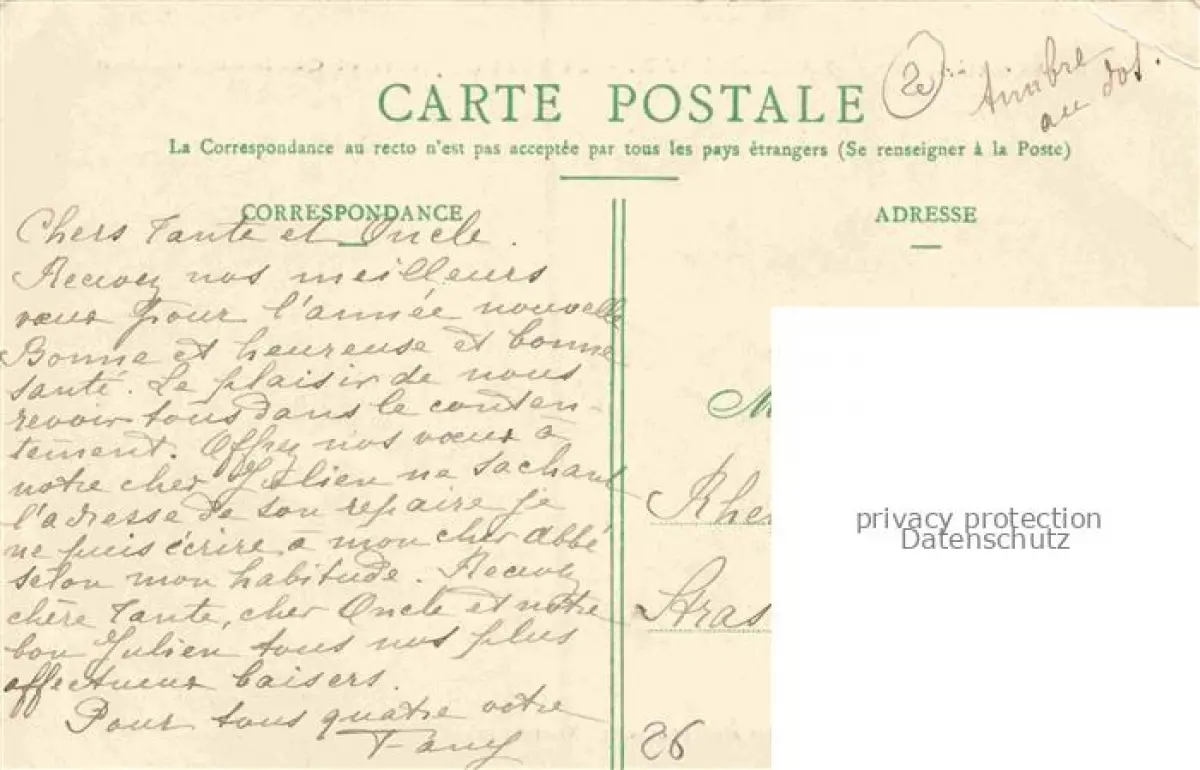 2e
timbre
au dos.
CARTE POSTALE
La Correspondance au recto n'est pas acceptée par tous les pays étrangers (Se renseigner à la Poste)
CORRESPONDANCE
Chers Tante et Oncle.
Recevez nos meilleurs
vœux pour l'année nouvelle
Bonne et heureuse et bonne
santé. Le plaisir de nous
revoir tous dans le conten-
tement. Offrez nos vœux à
notre cher Julien ne sachant
l'adresse de son repaire je
ne puis écrire à mon cher abbé
selon mon habitude. Recevez
chère Tante, cher Oncle et notre
bon Julien tous nos plus
affectueux baisers.
Pour tous quatre votre
Fany
ADRESSE
M
Rhe
Stras
26
privacy protection
Datenschutz